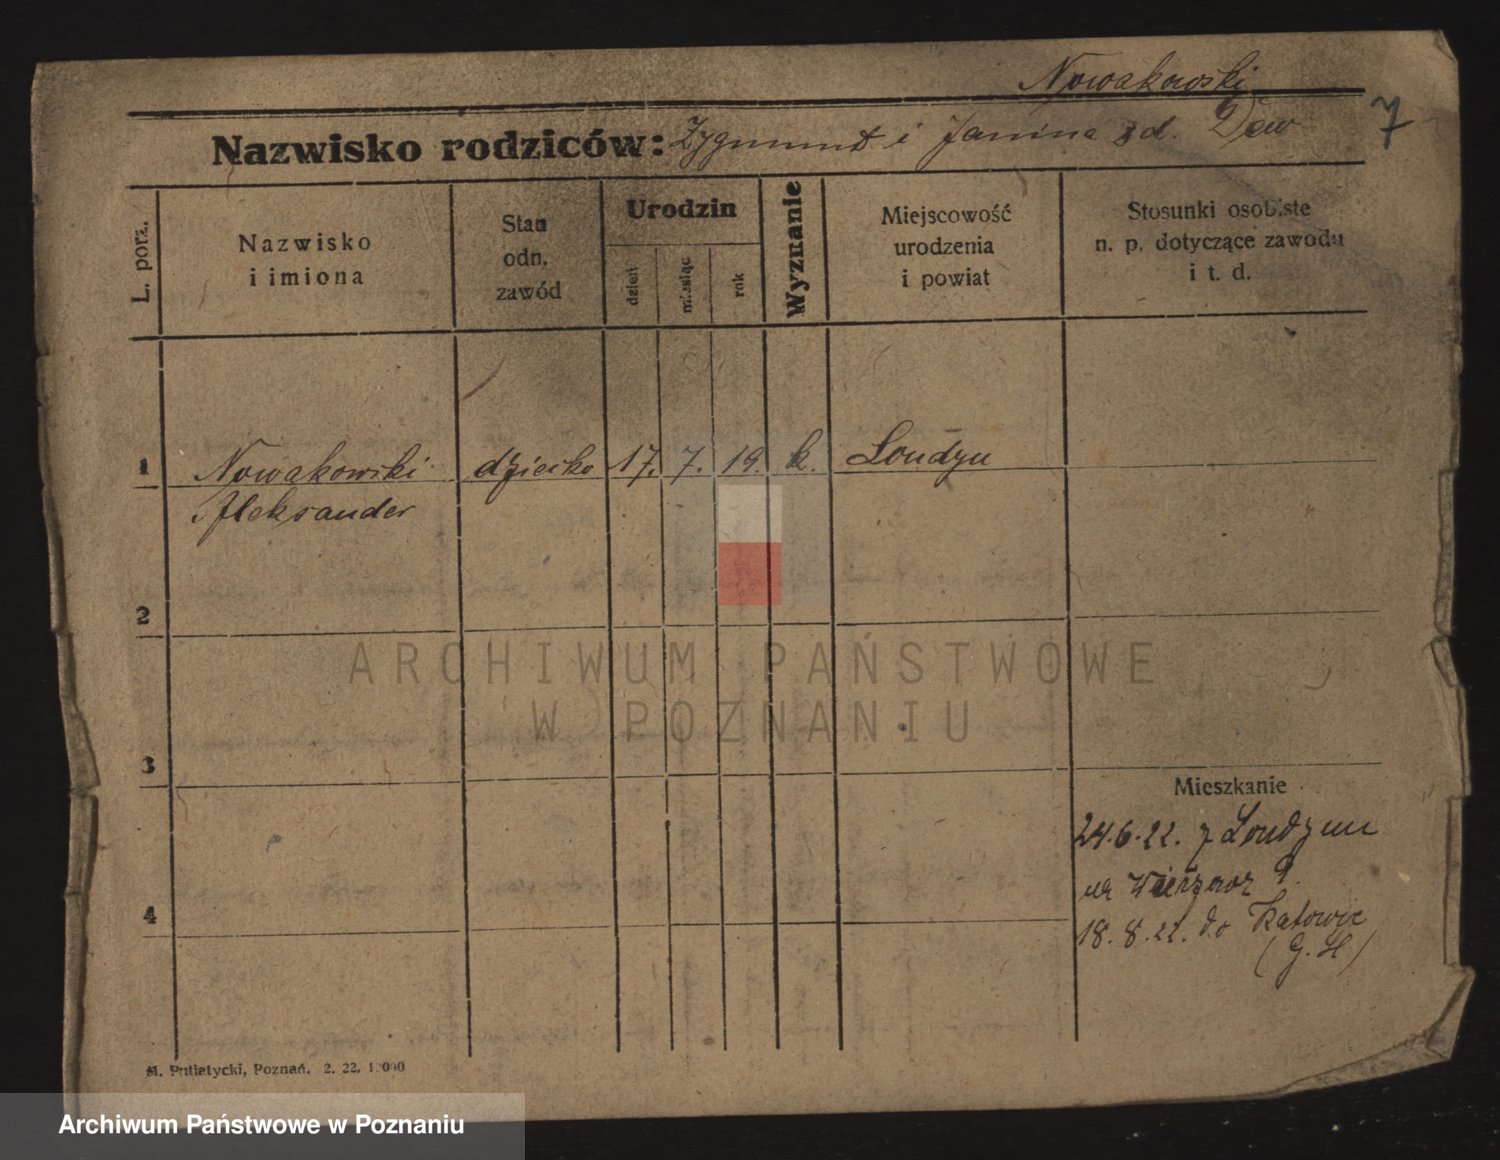 Nowakowski
Nazwisko rodziców: Zygmunt i Janina zd. Dew
7
L. porz.
Nazwisko
i imiona
Stan
odn.
zawód
Urodzin
dzień
miesiąc
rok
Wyznanie
Miejscowość
urodzenia
i powiat
Stosunki osobiste
n. p. dotyczące zawodu
i t. d.
1 Nowakowski dziecko 17. 7. 19. k. Londyn
Aleksander
2
3
4
Mieszkanie
24.6.22. z Londynu
ur 9.
18.8.22. do Katowic
(G. Śl)
M. Putiatycki, Poznań. 2. 22. 1000
ARCHIWUM PAŃSTWOWE
W POZNANIU
Archiwum Państwowe w Poznaniu